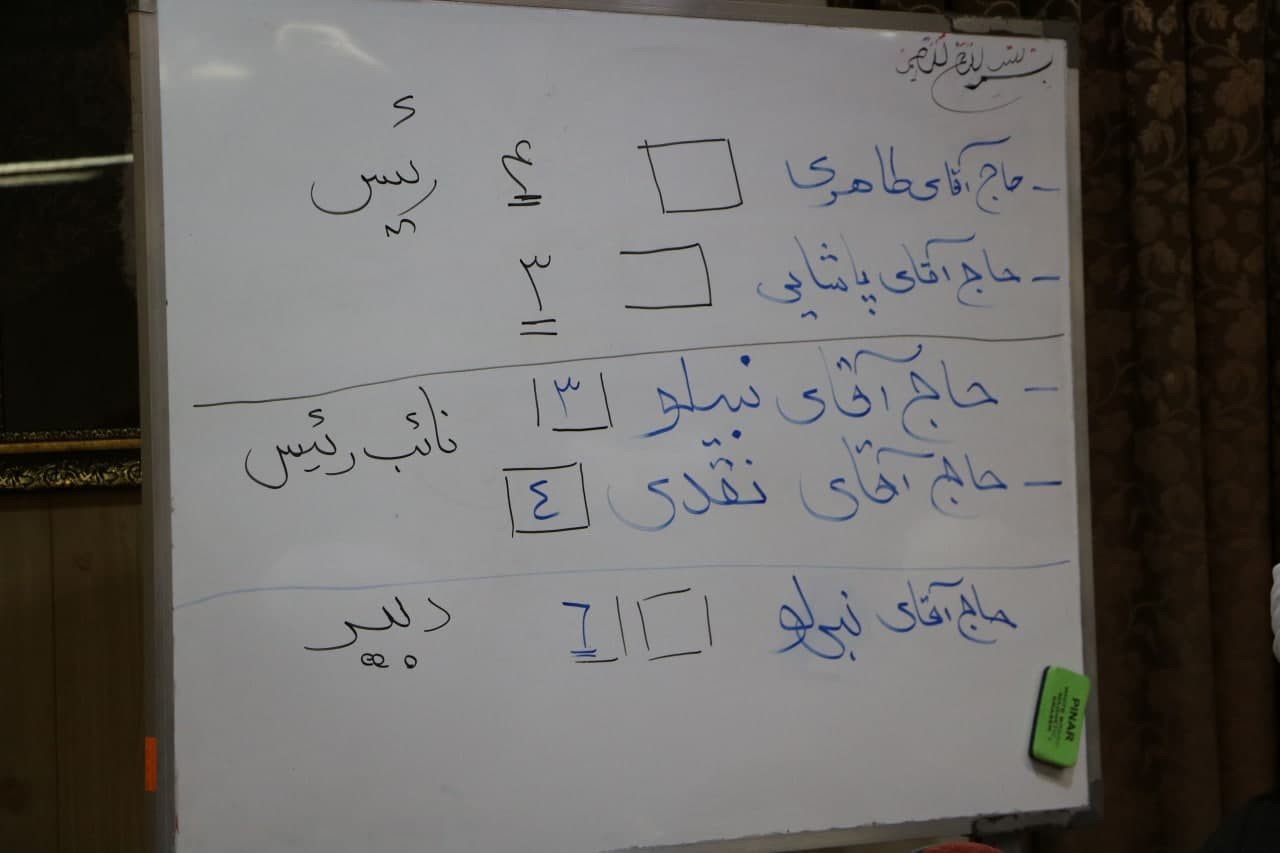 بسم الله الرحمن الرحیم
- حاج آقای طاهری ٤ رئیس
- حاج آقای پاشایی ۳
- حاج آقای نبیلو ۳
نائب رئیس
- حاج آقای نقدی ٤
حاج آقای نبیلو ٦ دبیر
PINAR